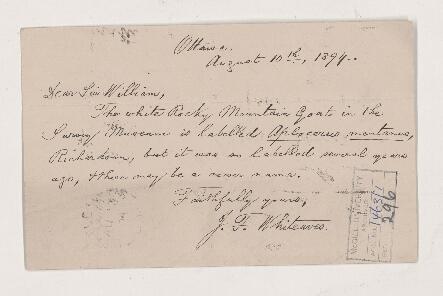 Ottawa.
August 10th, 1894.
Dear Sir William,
The white Rocky Mountain Goats in the
Survey Museum is labelled Aplocerus montanus,
Richardson, but it was so labelled several years
ago, & there may be a newer name.
Faithfully yours,
J. F. Whiteaves.
McGILL UNIVERSITY
ACC. NO. 1463/1
REF. 296